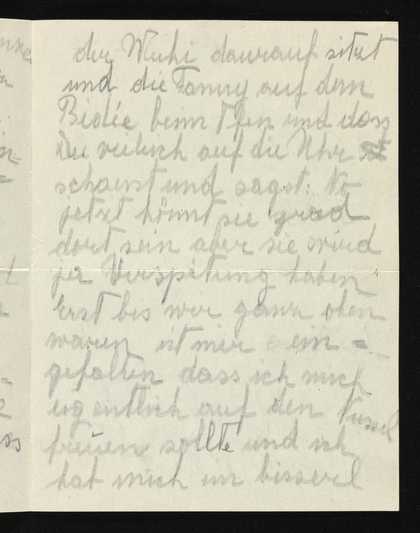 der Muhi daurauf sitzt
und die Fanny auf dem
Bidée beim Ofen und dass
Du reelisch auf die Uhr
schaust und sagst: No
jetzt könnt sie grad
dort sein aber sie wird
ja Verspätung haben"
Erst bis wir ganz oben
waren ist mir ein =
gefallen dass ich mich
eigentlich auf den
freuen sollte und ich
hat mich ein bisserl